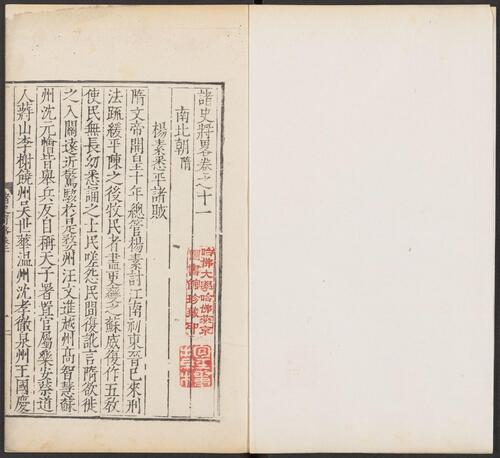 諸史將畧卷之十一
南北朝隋
楊素悉平諸賊
隋文帝開皇十年總管楊素討江南初東晉已來刑
法踈緩平陳之後牧民者盡更變之蘇威復作五教
使民無長幼悉誦之士民嗟怨民間復訛言隋欲徙
之入關遠近驚駭於是婺州汪文進越州高智慧蘇
州沈元懀皆舉兵反自稱天子署置官屬樂安蔡道
人蔣山李㮛饒州吳世華温州沈孝徹泉州王國慶
哈佛大學哈佛燕京
圖書館珍藏印